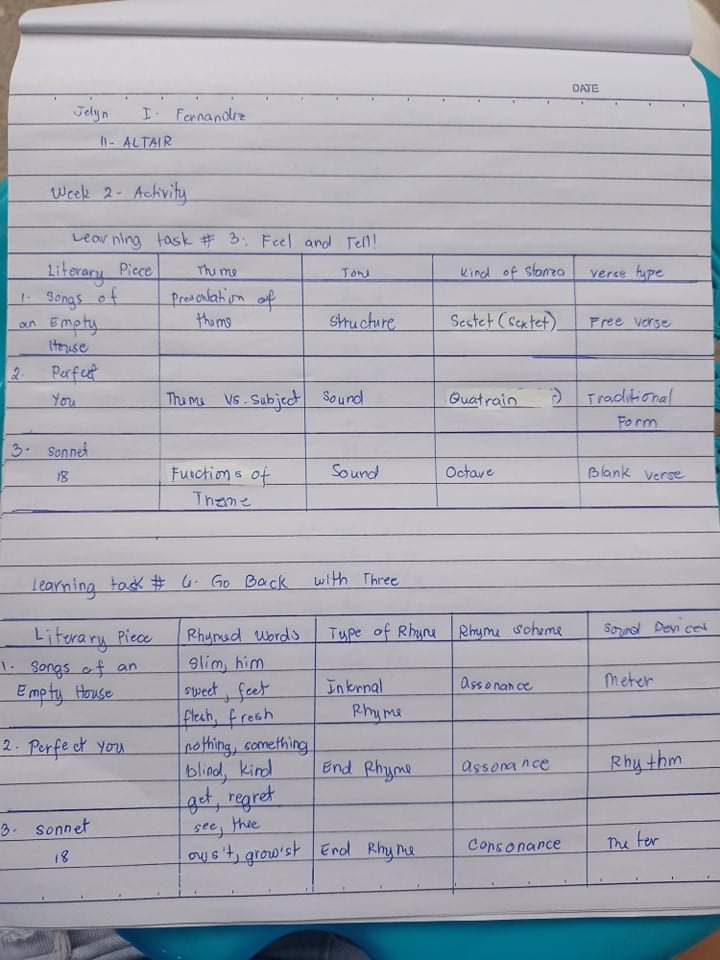 DATE
Jelyn I. Fernandez
11- ALTAIR
Week 2 - Activity
Learning task # 3: Feel and Tell!
Literary Piece Theme Tone Kind of Stanza verse type
1. Songs of Presentation of
an Empty theme structure Sestet (sextet) Free verse
House
2. Perfect
You Theme Vs. Subject Sound Quatrain :) Traditional
Form
3. Sonnet
18 Functions of Sound Octave Blank verse
Theme
Learning task # 4. Go Back with Three
Literary Piece Rhymed Words Type of Rhyme Rhyme Scheme Sound Devices
1. Songs of an slim, him
Empty House sweet, feet Internal assonance Meter
flesh, fresh Rhyme
2. Perfect you nothing, something
blind, kind End Rhyme assonance Rhythm
get, regret
3. Sonnet see, thee
18 ows't, grow'st End Rhyme Consonance Meter